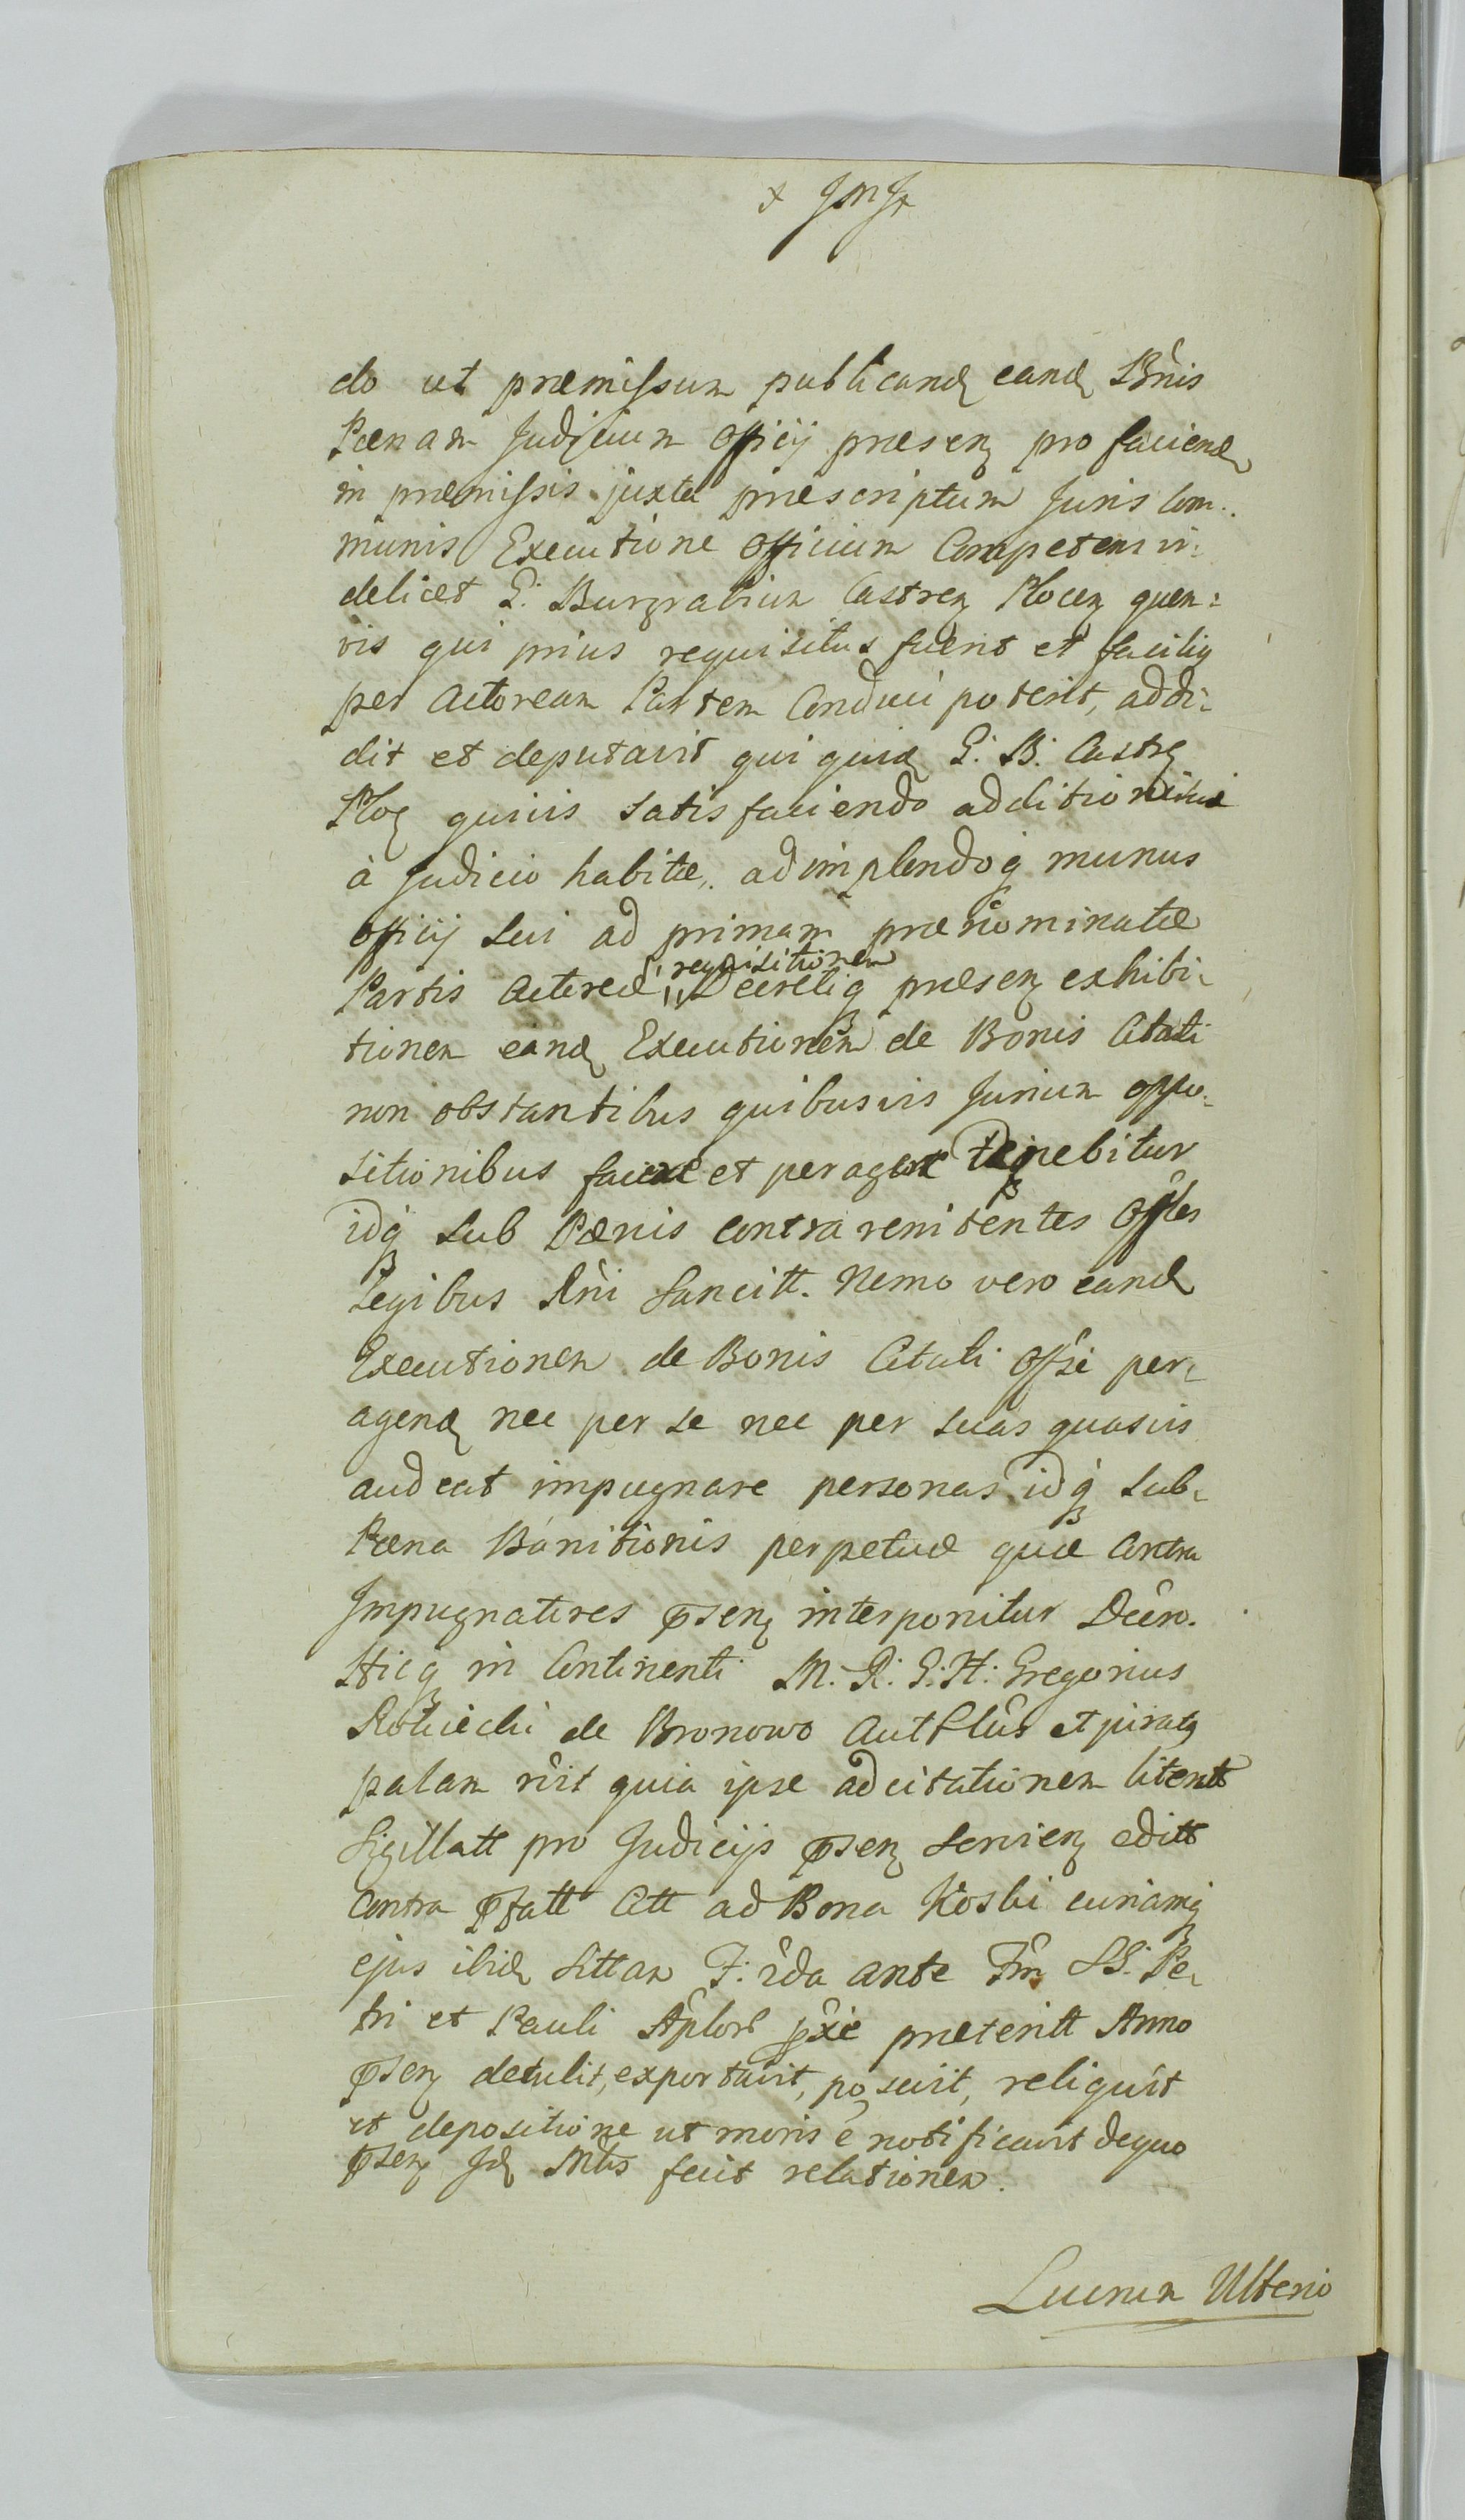 do ut præmissum publicand eand Bnis
Pœnam Judicium Officij præsen pro faciend
in præmissis juxta præscriptum Juris Com:
munis Executione Officium Competens vi:
delicet G: Burgrabium Castren Plocen quem:
vis qui prius requisitus fuerit et faciliq
per Actoream Partem Conduci poterit, addi:
dit et deputavit qui quid G: B: Castr
Ploc quivis satisfaciendo additioni
à Judicio habitæ, adimplendoq munus
Officij sui ad primam prænominatæ
requisitionem
Partis Actoreæ Decretiq præsen exhibi:
tionem eand Executionem de Bonis Citati
non obstantibus quibusvis Jurium oppo:
sitionibus facere et peragere tenebitur
idq sub Pœnis contra renitentes Offles
Legibus Rni Sancitt. Nemo vero eand
Executionem de Bonis Citati Offse per:
agend nec per se nec per suas quasvis
audeat impugnare personas idq sub:
Pœna Banitionis perpetuæ quæ Contra
Impugnatores psen interponitur Decro.
Hicq in Continenti M. R: G: H: Gregorius
de Bronowo Aut et jurat
palam rvit quia ipse ad citationem litentt
Sigillatt pro Judicijs psen servien editt
Contra pfatt Citt ad Bona Koski curiamq
ejus ibid sittam F: 2da ante Fm SS: Pe:
tri et Pauli Aplor pxie præteritt Anno
psen detulit, exportavit, posuit, reliquit
et depositione ut moris e notificavit dequo
psen Jd Mtis fecit relationem.
Lucrum Ulterio